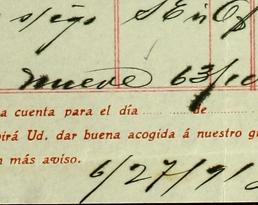 s/igo
nueve 63/10
a cuenta para el día ........ de
birá Ud. dar buena acogida á nuestro
n más aviso.
6/27/91